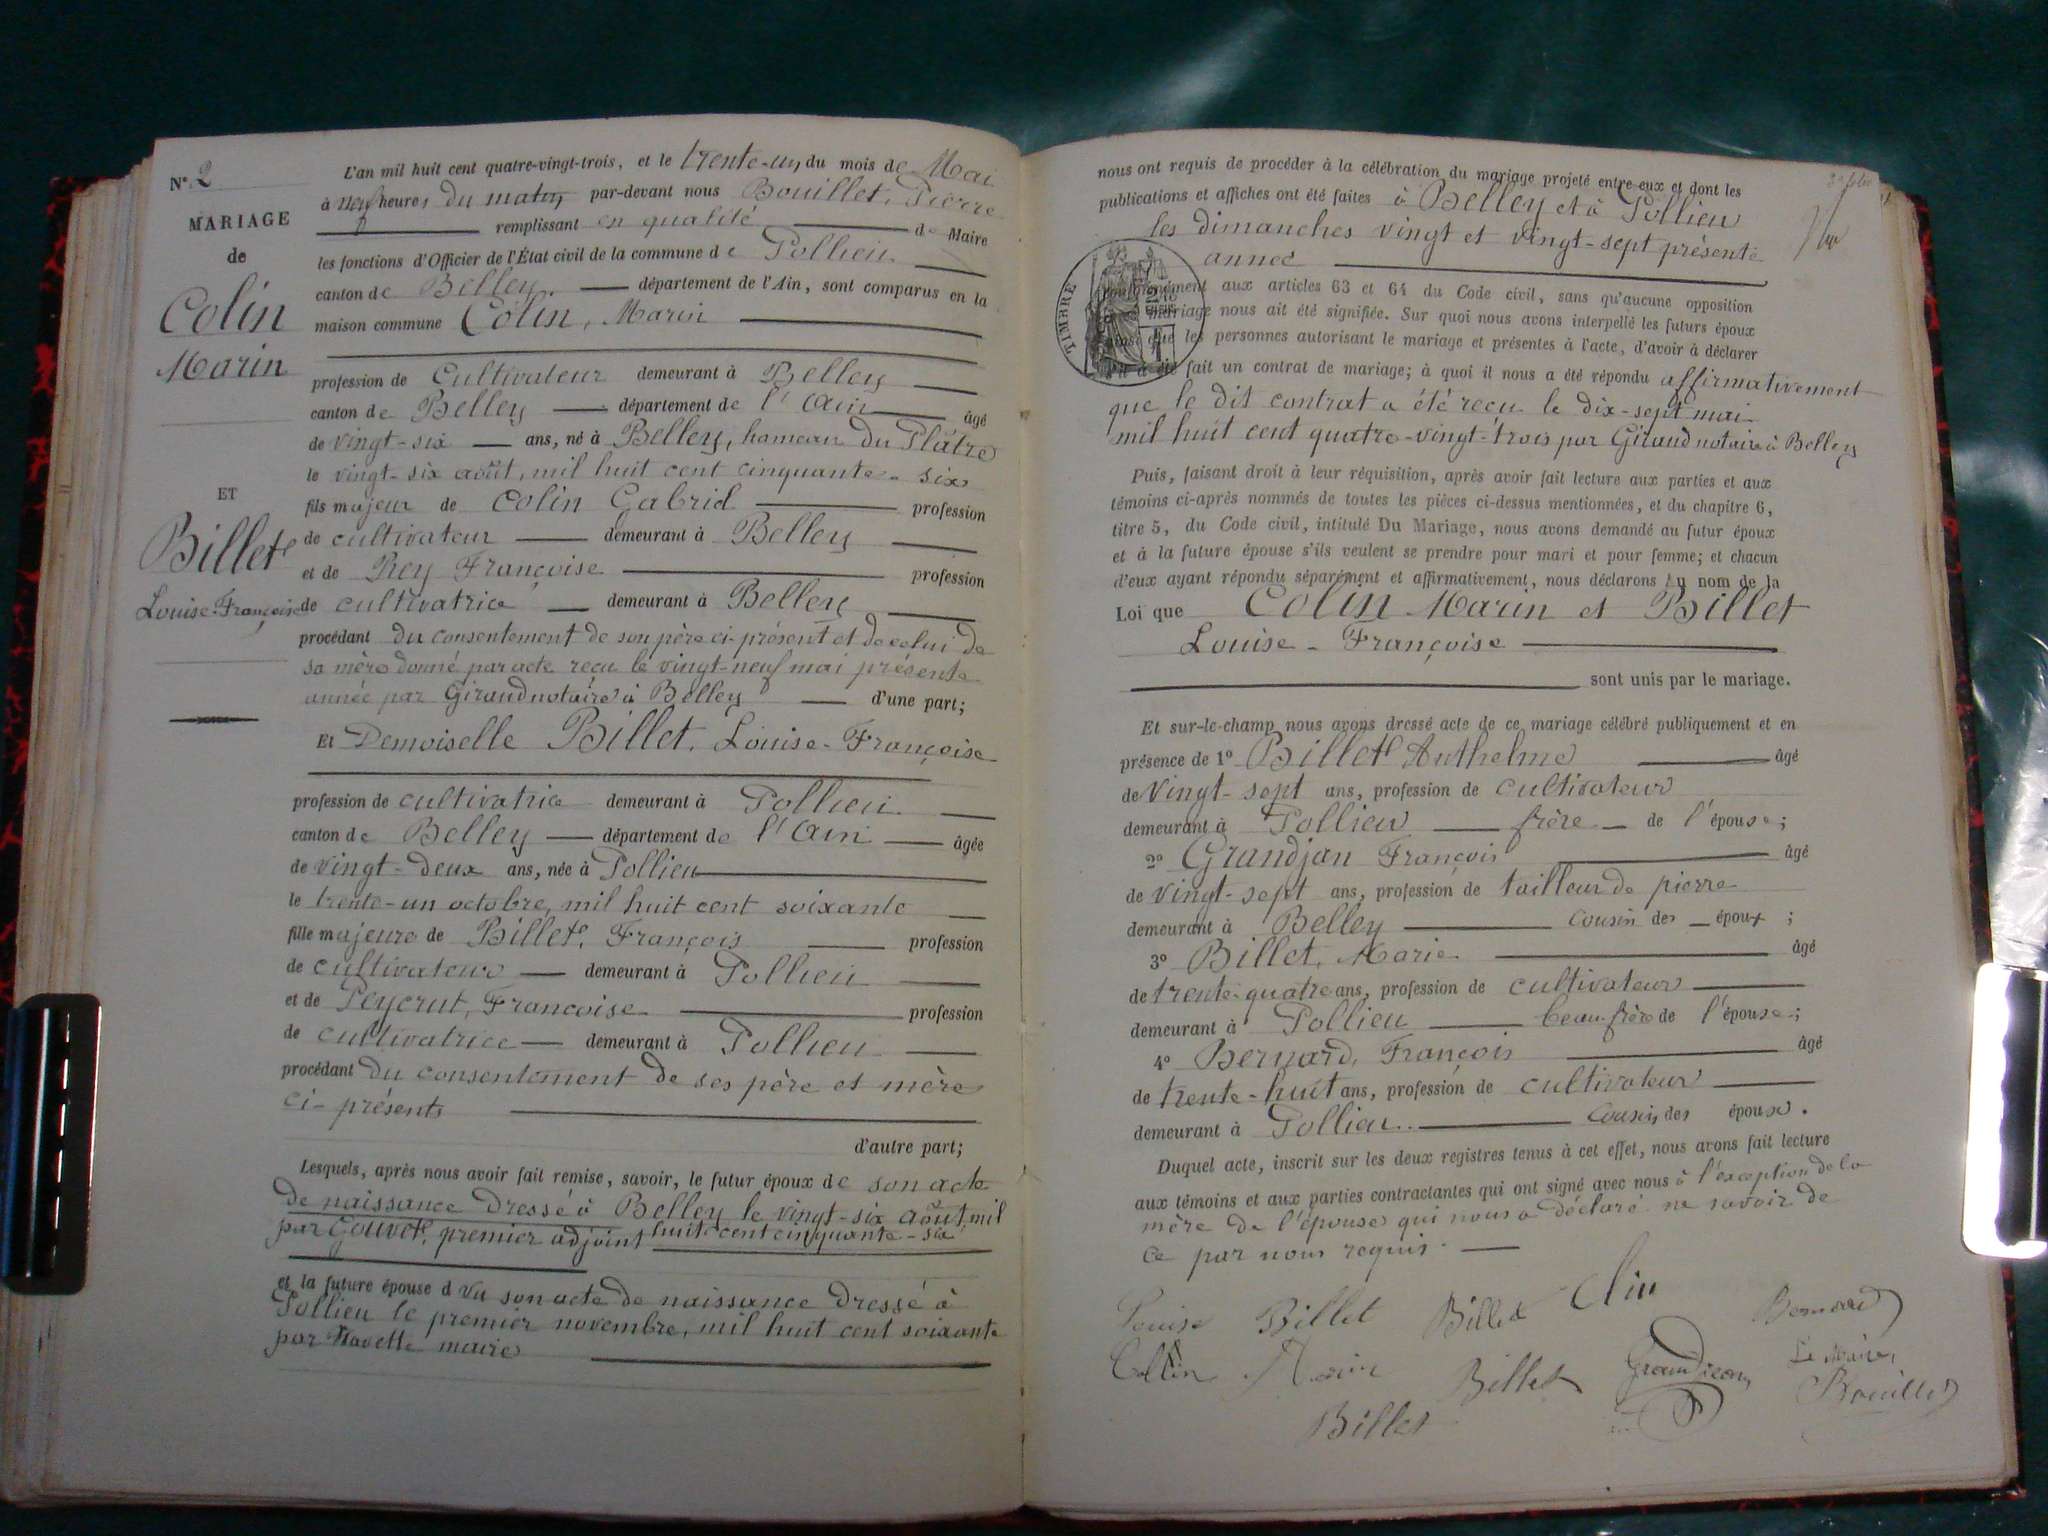 N° 2
MARIAGE
de
Colin
Marin
ET
Billet
Louise-Françoise
L'an mil huit cent quatre-vingt-trois, et le trente-un du mois de Mai
à neuf heures du matin par-devant nous Bouillet, Pierre
remplissant en qualité de Maire
les fonctions d'Officier de l'État civil de la commune de Pollieu
canton de Belley département de l'Ain, sont comparus en la
maison commune Colin, Marin
profession de Cultivateur demeurant à Belley
canton de Belley département de l'Ain âgé
de vingt-six ans, né à Belley, hameau du Plâtre
le vingt-six août, mil huit cent cinquante-six
fils majeur de Colin Gabriel profession
de cultivateur demeurant à Belley
et de Rey Françoise profession
de cultivatrice demeurant à Belley
procédant du consentement de son père ci-présent et de celui de
sa mère donné par acte reçu le vingt-neuf mai présente
année par Giraud notaire à Belley d'une part;
Et Demoiselle Billet, Louise-Françoise
profession de cultivatrice demeurant à Pollieu
canton de Belley département de l'Ain âgée
de vingt-deux ans, née à Pollieu
le trente-un octobre, mil huit cent soixante
fille majeure de Billet, François profession
de cultivateur demeurant à Pollieu
et de Peycrut, Françoise profession
de cultivatrice demeurant à Pollieu
procédant du consentement de ses père et mère
ci-présents
d'autre part;
Lesquels, après nous avoir fait remise, savoir, le futur époux de son acte
de naissance dressé à Belley le vingt-six août, mil
par Gouvet, premier adjoint huit cent cinquante-six
et la future épouse d vu son acte de naissance dressé à
Pollieu le premier novembre, mil huit cent soixante
par Navette maire
nous ont requis de procéder à la célébration du mariage projeté entre eux et dont les
publications et affiches ont été faites à Belley et à Pollieu
les dimanches vingt et vingt-sept présente
année
TIMBRE
conformément aux articles 63 et 64 du Code civil, sans qu'aucune opposition
mariage nous ait été signifiée. Sur quoi nous avons interpellé les futurs époux
ainsi que les personnes autorisant le mariage et présentes à l'acte, d'avoir à déclarer
s'il a été fait un contrat de mariage; à quoi il nous a été répondu affirmativement
que le dit contrat a été reçu le dix-sept mai
mil huit cent quatre-vingt-trois par Giraud notaire à Belley
Puis, faisant droit à leur réquisition, après avoir fait lecture aux parties et aux
témoins ci-après nommés de toutes les pièces ci-dessus mentionnées, et du chapitre 6,
titre 5, du Code civil, intitulé Du Mariage, nous avons demandé au futur époux
et à la future épouse s'ils veulent se prendre pour mari et pour femme; et chacun
d'eux ayant répondu séparément et affirmativement, nous déclarons au nom de la
Loi que Colin Marin et Billet
Louise-Françoise
sont unis par le mariage.
Et sur-le-champ nous avons dressé acte de ce mariage célébré publiquement et en
présence de 1° Billet Anthelme âgé
de vingt-sept ans, profession de cultivateur
demeurant à Pollieu frère de l'épouse;
2° Grandjan François âgé
de vingt-sept ans, profession de tailleur de pierre
demeurant à Belley cousin des époux;
3° Billet, Marie âgé
de trente-quatre ans, profession de cultivateur
demeurant à Pollieu beau-frère de l'épouse;
4° Bernard, François âgé
de trente-huit ans, profession de cultivateur
demeurant à Pollieu cousin des époux.
Duquel acte, inscrit sur les deux registres tenus à cet effet, nous avons fait lecture
aux témoins et aux parties contractantes qui ont signé avec nous à l'exception de la
mère de l'épouse qui nous a déclaré ne savoir de
ce par nous requis.
Louise Billet Billet Colin Bernard
Collin Marin Billet Grandjean Le Maire,
Billet Bouillet